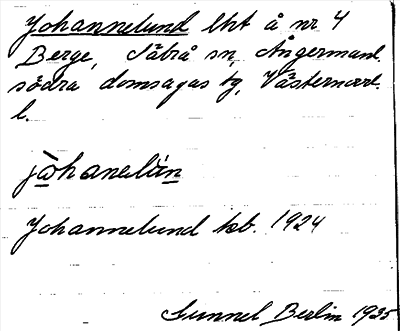 Johannelund lht å nr 4
Berge, Säbrå sn, Ångermanl.
södra domsagas tg, Västernorrl.
l.
johanelún
Johannelund kb. 1924
Gunnel Berlin 1935